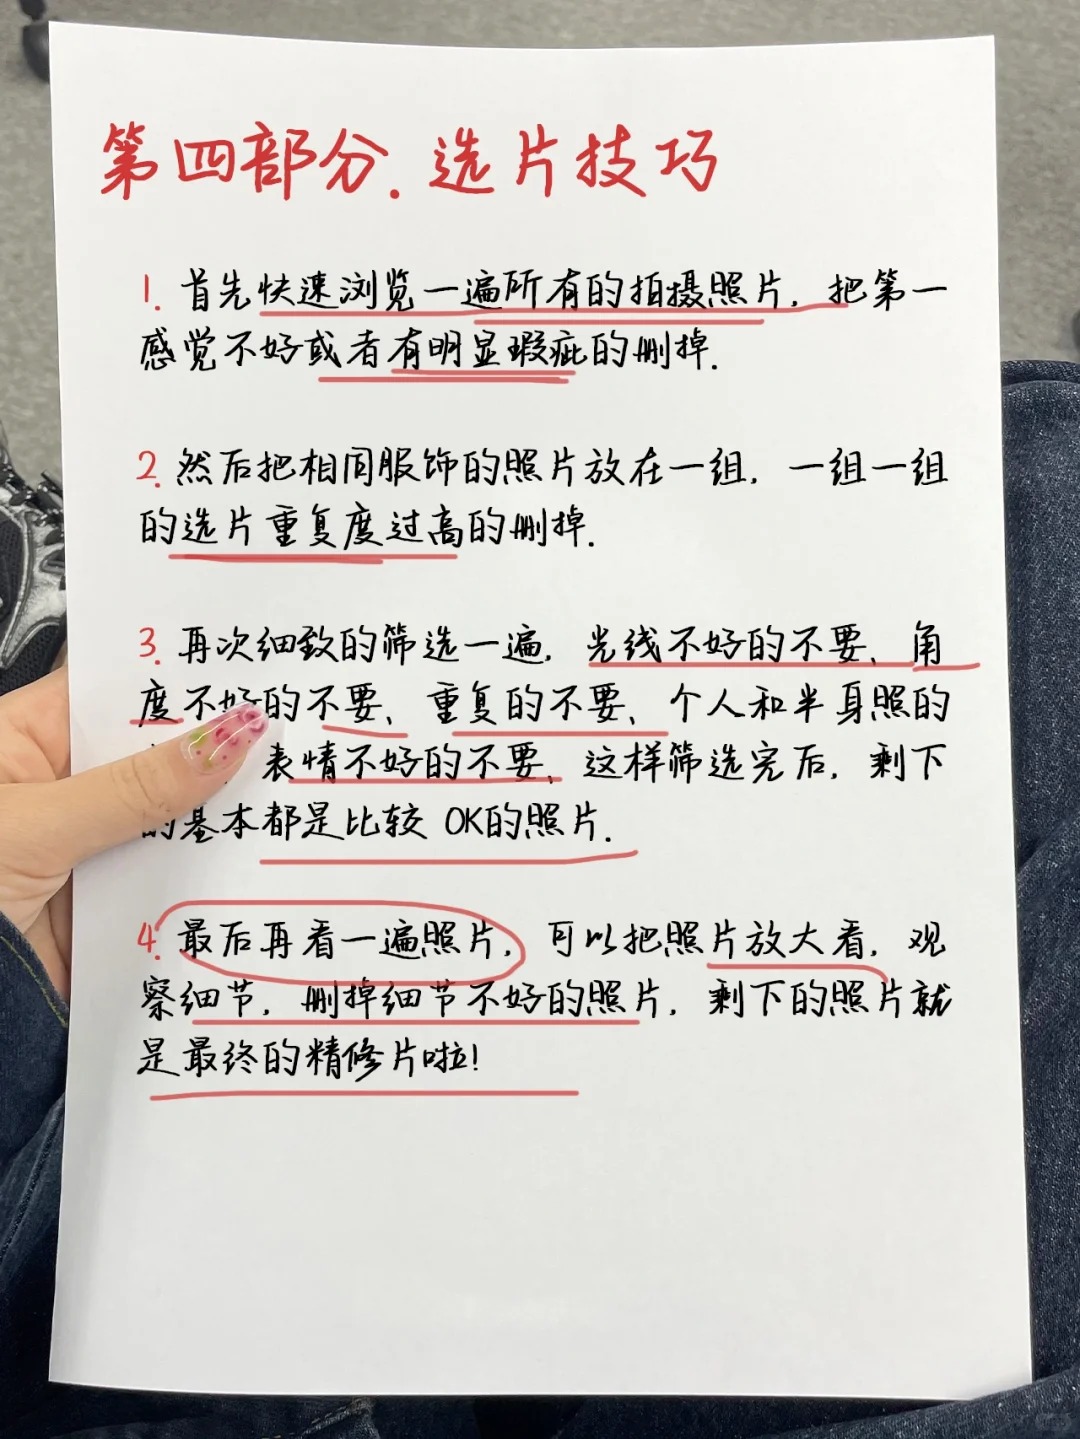 第四部分.选片技巧
1. 首先快速浏览一遍所有的拍摄照片，把第一
感觉不好或者有明显瑕疵的删掉.
2. 然后把相同服饰的照片放在一组，一组一组
的选片重复度过高的删掉.
3. 再次细致的筛选一遍，光线不好的不要、角
度不好的不要、重复的不要、个人和半身照的
表情不好的不要、这样筛选完后，剩下
的基本都是比较 OK的照片.
4. 最后再看一遍照片，可以把照片放大看，观
察细节，删掉细节不好的照片，剩下的照片就
是最终的精修片啦!